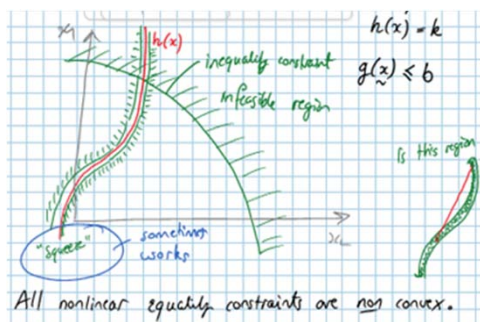 x1
h(x)
h(x) = k
inequality constraint
infeasible region
g(x) ≤ b
Is this region
"Squeeze"
sometimes
works
x2
All nonlinear equality constraints are non convex.